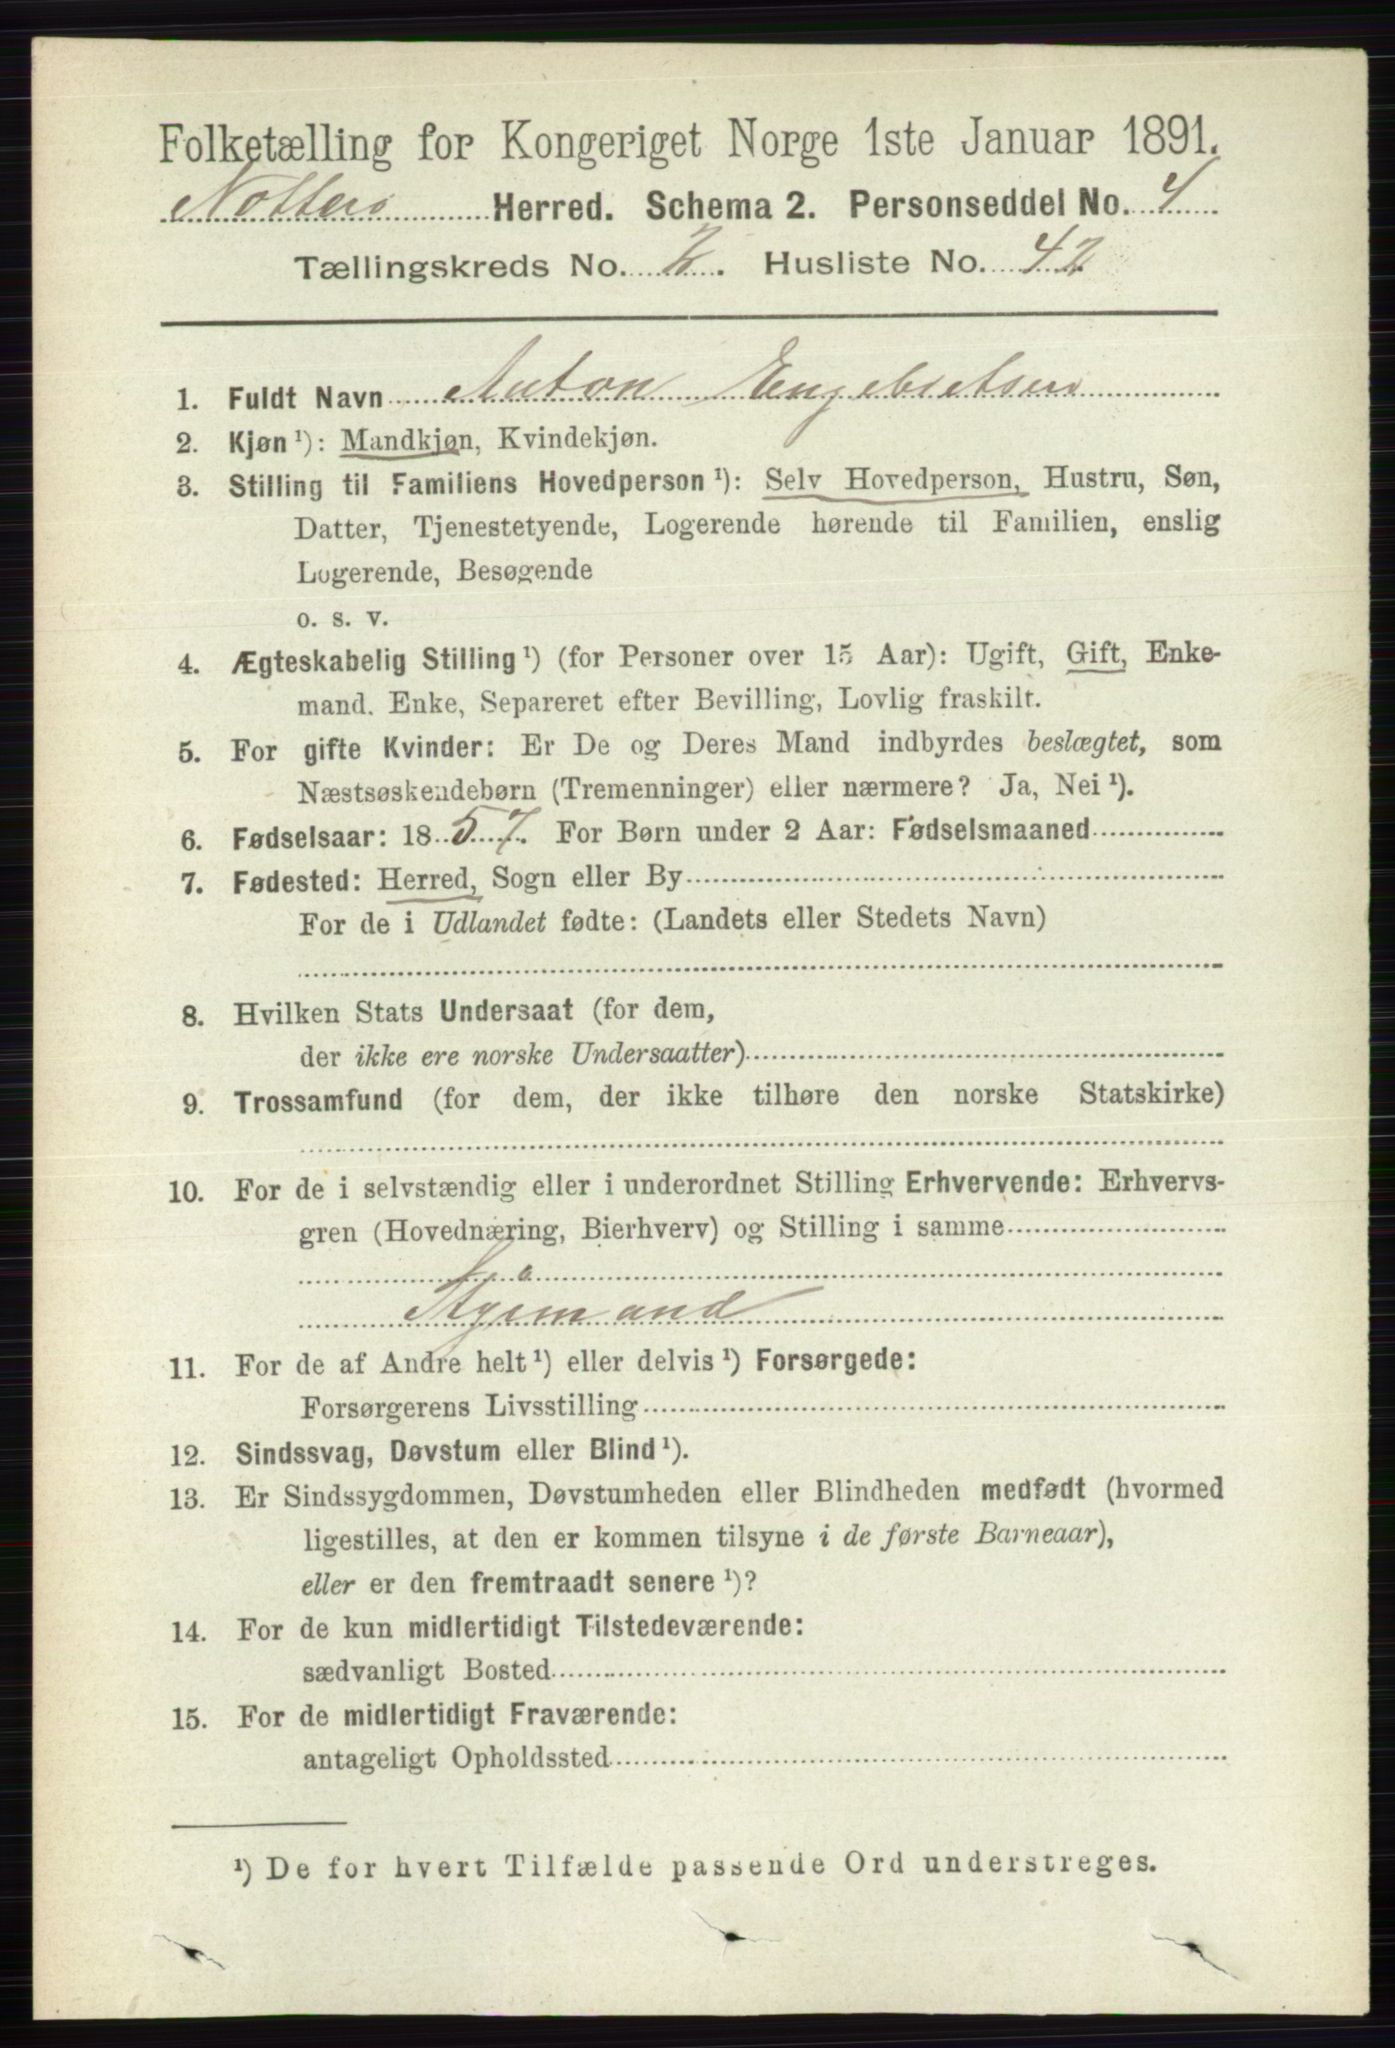 Folketælling for Kongeriget Norge 1ste Januar 1891.
Nøtterø Herred. Schema 2. Personseddel No. 4
Tællingskreds No. 2. Husliste No. 42
1. Fuldt Navn Anton Engebretsen
2. Kjøn ¹): Mandkjøn, Kvindekjøn.
3. Stilling til Familiens Hovedperson ¹): Selv Hovedperson, Hustru, Søn,
Datter, Tjenestetyende, Logerende hørende til Familien, enslig
Logerende, Besøgende
o. s. v.
4. Ægteskabelig Stilling ¹) (for Personer over 15 Aar): Ugift, Gift, Enke-
mand. Enke, Separeret efter Bevilling, Lovlig fraskilt.
5. For gifte Kvinder: Er De og Deres Mand indbyrdes beslægtet, som
Næstsøskendebørn (Tremenninger) eller nærmere? Ja, Nei ¹).
6. Fødselsaar: 1857. For Børn under 2 Aar: Fødselsmaaned
7. Fødested: Herred, Sogn eller By
For de i Udlandet fødte: (Landets eller Stedets Navn)
8. Hvilken Stats Undersaat (for dem,
der ikke ere norske Undersaatter)
9. Trossamfund (for dem, der ikke tilhøre den norske Statskirke)
10. For de i selvstændig eller i underordnet Stilling Erhvervende: Erhvervs-
gren (Hovednæring, Bierhverv) og Stilling i samme
11. For de af Andre helt ¹) eller delvis ¹) Forsørgede:
Forsørgerens Livsstilling
12. Sindssvag, Døvstum eller Blind ¹).
13. Er Sindssygdommen, Døvstumheden eller Blindheden medfødt (hvormed
ligestilles, at den er kommen tilsyne i de første Barneaar),
eller er den fremtraadt senere ¹)?
14. For de kun midlertidigt Tilstedeværende:
sædvanligt Bosted
15. For de midlertidigt Fraværende:
antageligt Opholdssted
¹) De for hvert Tilfælde passende Ord understreges.